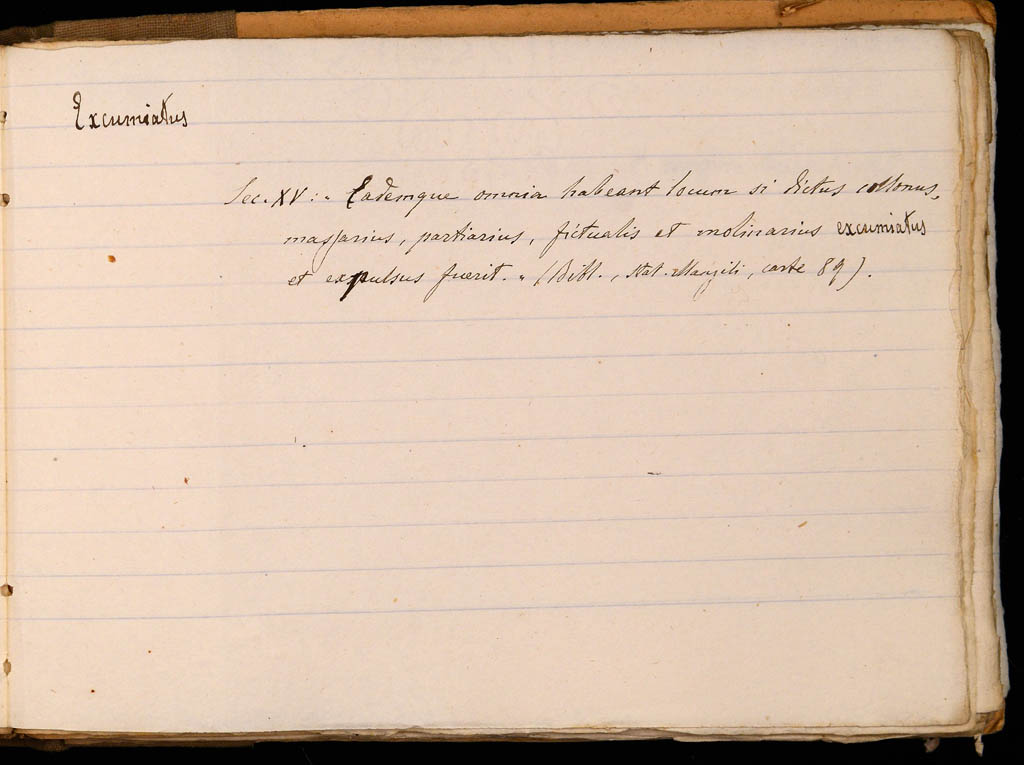 Excumiatus
Sec. XV: „ Eademque omnia habeant locum si dictus collonus,
massarius, partiarius, fictualis et molinarius excumiatus
et expulsus fuerit. „ (Bibl., stat. Mazzili, carte 89).